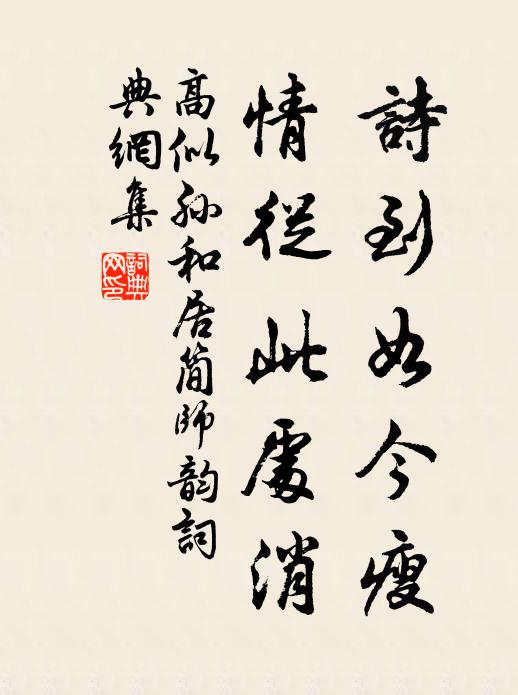 詩到如今瘦
情從此處消
高似孫和居簡師韵詞
典網集
詞典網印